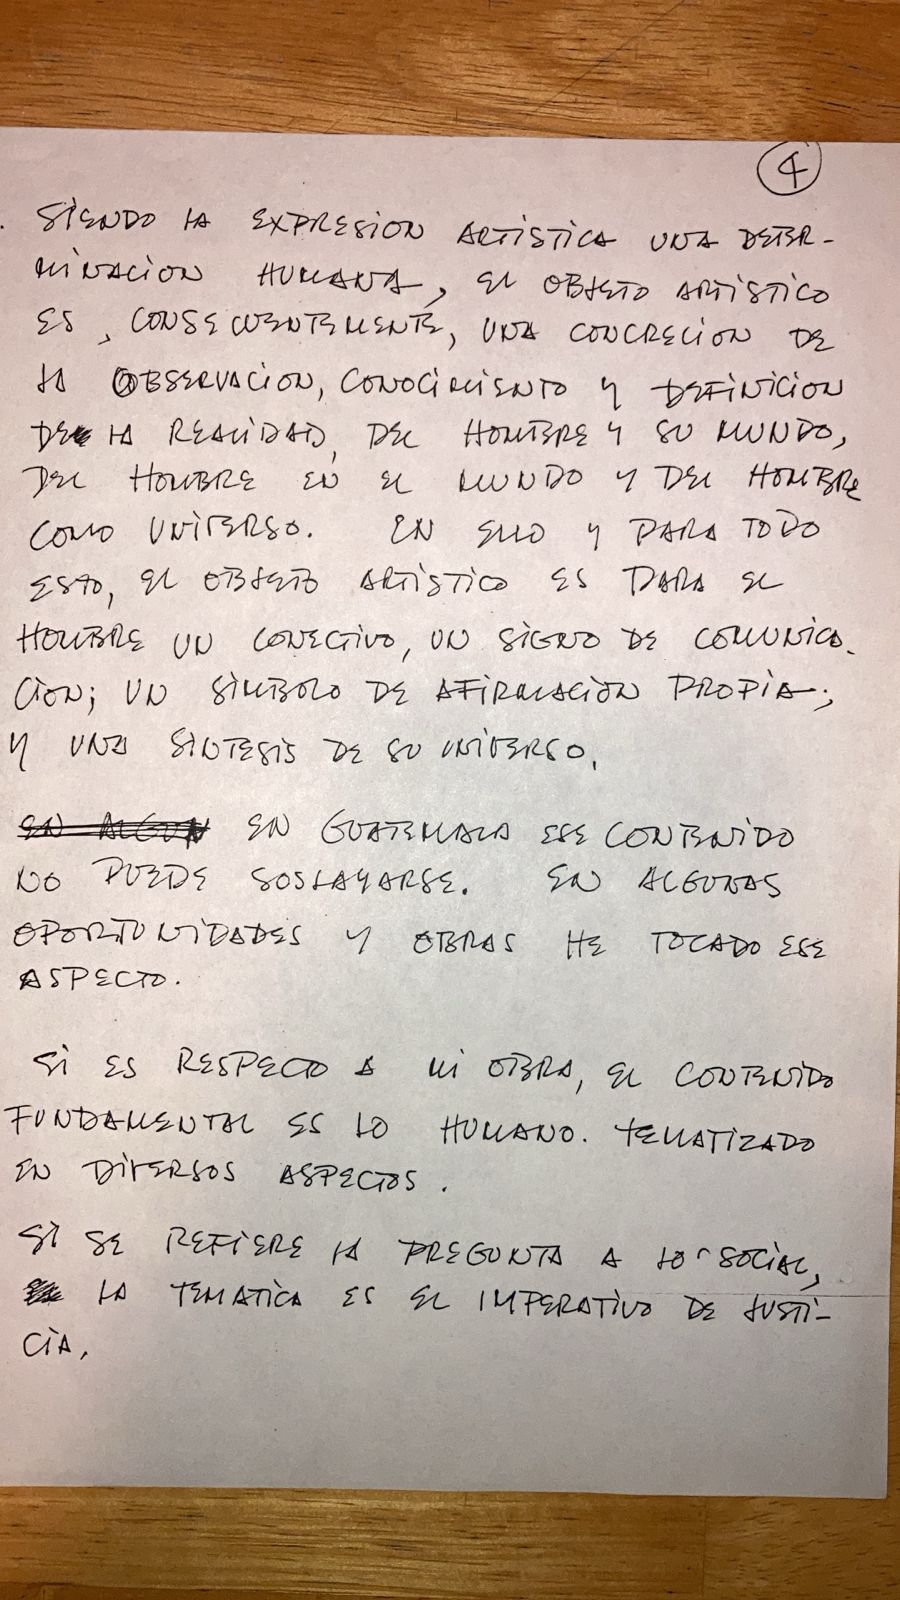 4
. SIENDO LA EXPRESION ARTISTICA UNA DETER-
MINACION HUMANA, EL OBJETO ARTISTICO
ES, CONSECUENTEMENTE, UNA CONCRECION DE
LA OBSERVACION, CONOCIMIENTO Y DEFINICION
DE LA REALIDAD, DEL HOMBRE Y SU MUNDO,
DEL HOMBRE EN EL MUNDO Y DEL HOMBRE
COMO UNIVERSO. EN ELLO Y PARA TODO
ESTO, EL OBJETO ARTISTICO ES PARA EL
HOMBRE UN CONECTIVO, UN SIGNO DE COMUNICA-
CION; UN SIMBOLO DE AFIRMACION PROPIA;
Y UNA SINTESIS DE SU UNIVERSO.
EN ALGUN EN GUATEMALA ESE CONTENIDO
NO PUEDE SOSLAYARSE. EN ALGUNAS
OPORTUNIDADES Y OBRAS HE TOCADO ESE
ASPECTO.
SI ES RESPECTO A MI OBRA, EL CONTENIDO
FUNDAMENTAL ES LO HUMANO. TEMATIZADO
EN DIVERSOS ASPECTOS.
SI SE REFIERE LA PREGUNTA A LO SOCIAL,
LA TEMATICA ES EL IMPERATIVO DE JUSTI-
CIA.